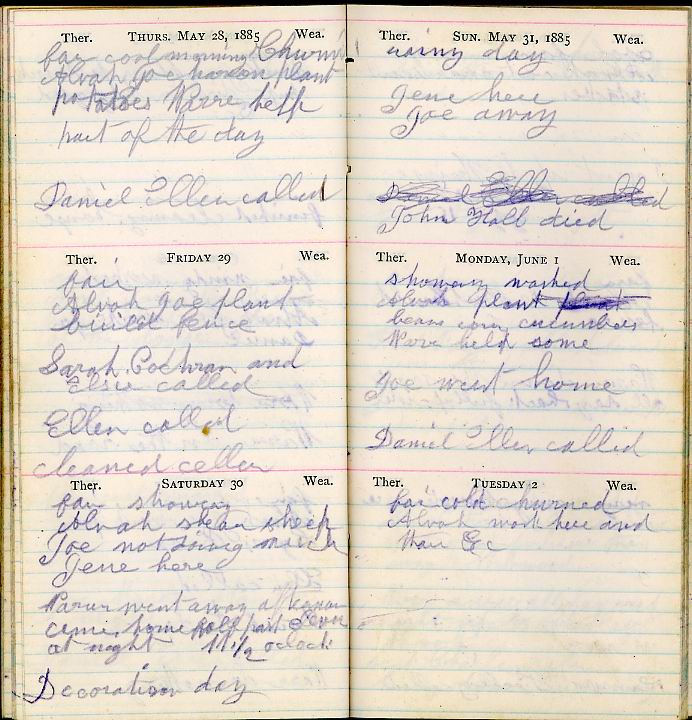 Ther. THURS. MAY 28, 1885 Wea.
fair cool morning Churn
Alvah Joe plant
potatoes Warre help
part of the day
Daniel Ellen called
Ther. FRIDAY 29 Wea.
fair
Alvah Joe plant
build fence
Sarah Cochran and
Elsie called
Ellen called
cleaned celler
Ther. SATURDAY 30 Wea.
fair showery
Alvah shear sheep
Joe not doing
Jene here
went away
came home half past
at night 11 1/2 oclock
Decoration day
Ther. SUN. MAY 31, 1885 Wea.
rainy day
Jene here
Joe away
Daniel Ellen called
John Hall died
Ther. MONDAY, JUNE 1 Wea.
showery washed
Alvah plant
beans corn cucumbers
Warre help some
Joe went home
Daniel Ellen called
Ther. TUESDAY 2 Wea.
fair cold churned
Alvah work here and